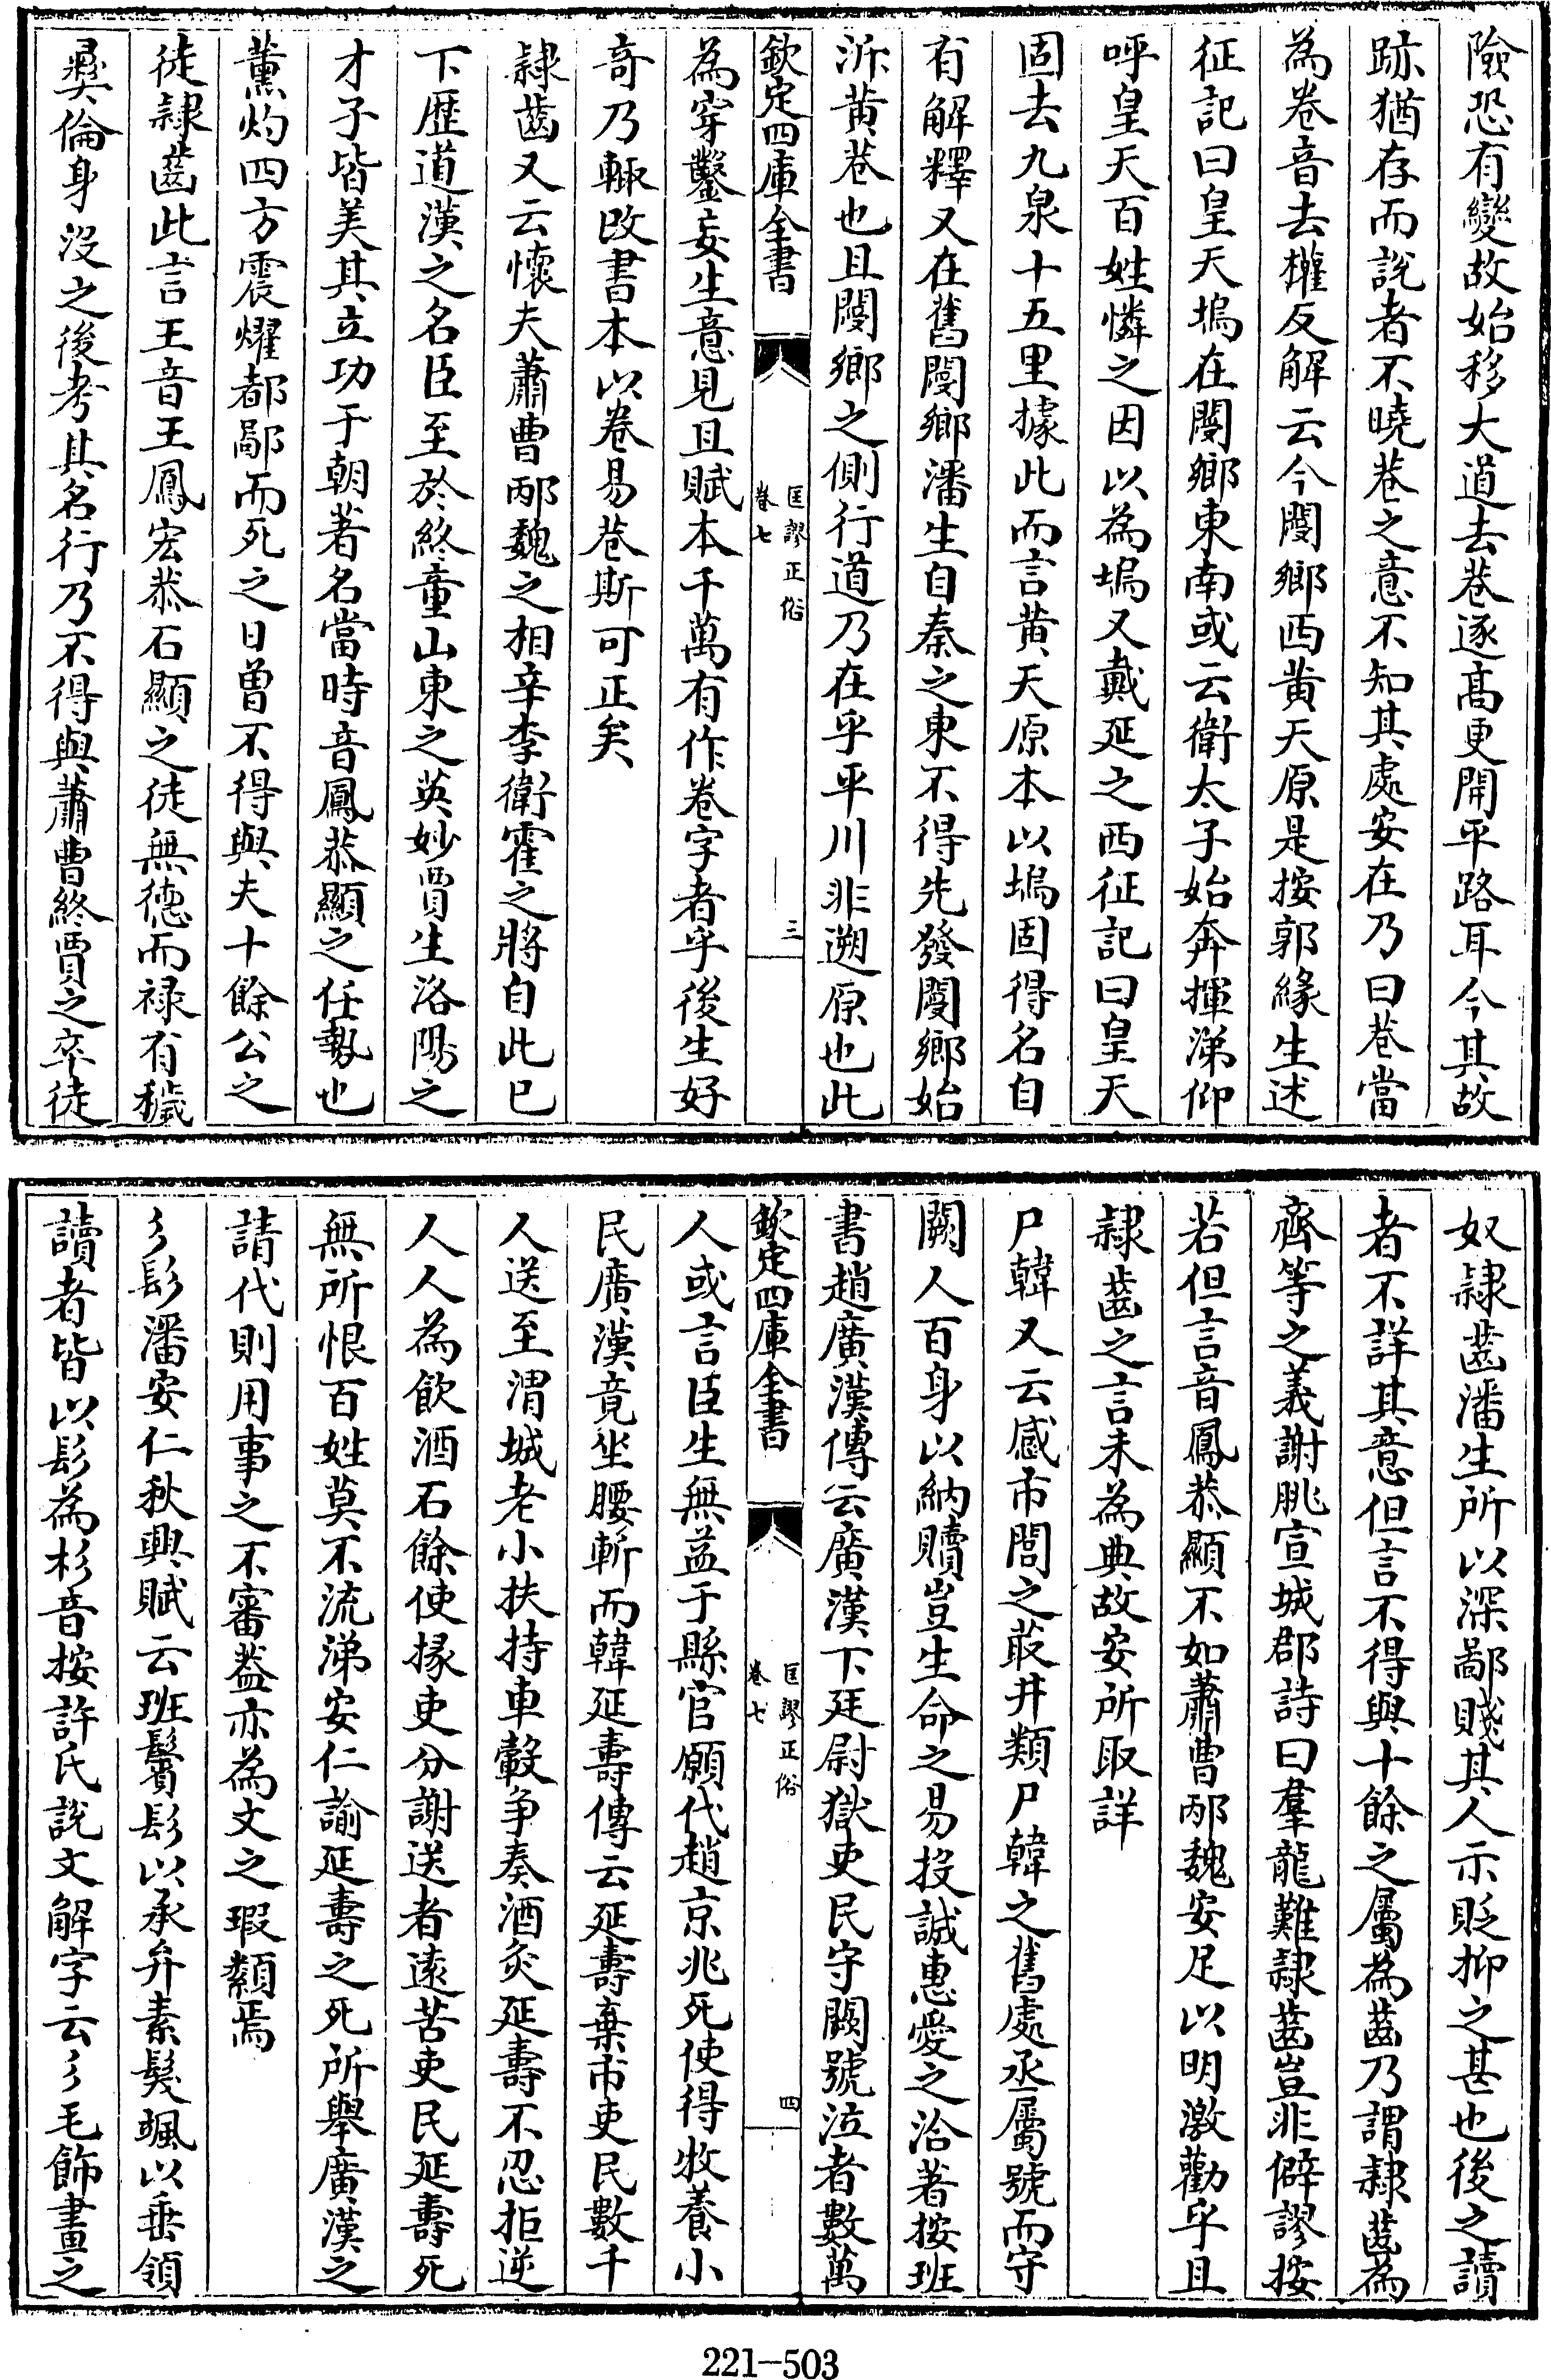 險恐有變故始移大道去巷逐髙更開平路耳今其故
跡猶存而說者不曉巷之意不知其處安在乃曰巷當
為卷音去權反解云今閿鄉西黄天原是按郭緣生述
征記曰皇天塢在閿鄉東南或云衛太子始奔揮涕仰
呼皇天百姓憐之因以為塢又戴延之西征記曰皇天
固去九泉十五里據此而言黄天原本以塢固得名自
有解釋又在舊閿鄉潘生自秦之東不得先發閿鄉始
泝黄巷也且閿鄉之側行道乃在乎平川非遡原也此
欽定四庫全書
匡謬正俗
卷七
三
為穿鑿妄生意見且賦本千萬有作卷字者乎後生好
奇乃輒改書本以卷易巷斯可正矣
隸齒又云懷夫蕭曹邴魏之相辛李衛霍之將自此已
下歴道漢之名臣至於終童山東之英妙賈生洛陽之
才子皆美其立功于朝著名當時音鳳恭顯之任勢也
薰灼四方震燿都鄙而死之日曽不得與夫十餘公之
徒隸齒此言王音王鳳宏恭石顯之徒無徳而禄有穢
彛倫身沒之後考其名行乃不得與蕭曹終賈之卒徒
奴隸齒潘生所以深鄙賤其人示貶抑之甚也後之讀
者不詳其意但言不得與十餘之屬為齒乃謂隸齒為
齊等之義謝朓宣城郡詩曰羣龍難隸齒豈非僻謬按
若但言音鳳恭顯不如蕭曹邴魏安足以明激勸乎且
隸齒之言未為典故安所取詳
尸韓又云感市閭之菆井類尸韓之舊處丞屬號而守
闕人百身以納贖豈生命之易投誠惠愛之洽著按班
書趙廣漢傳云廣漢下廷尉獄吏民守闕號泣者數萬
欽定四庫全書
匡謬正俗
卷七
四
人或言臣生無益于縣官願代趙京兆死使得牧養小
民廣漢竟坐腰斬而韓延夀傳云延夀棄市吏民數千
人送至渭城老小扶持車轂争奏酒炙延夀不忍拒逆
人人為飲酒石餘使掾吏分謝送者逺苦吏民延夀死
無所恨百姓莫不流涕安仁諭延夀之死所舉廣漢之
請代則用事之不審葢亦為文之瑕纇焉
彡髟潘安仁秋興賦云班鬢髟以承弁素髮颯以垂領
讀者皆以髟為杉音按許氏說文解字云彡毛飾畫之
221-503